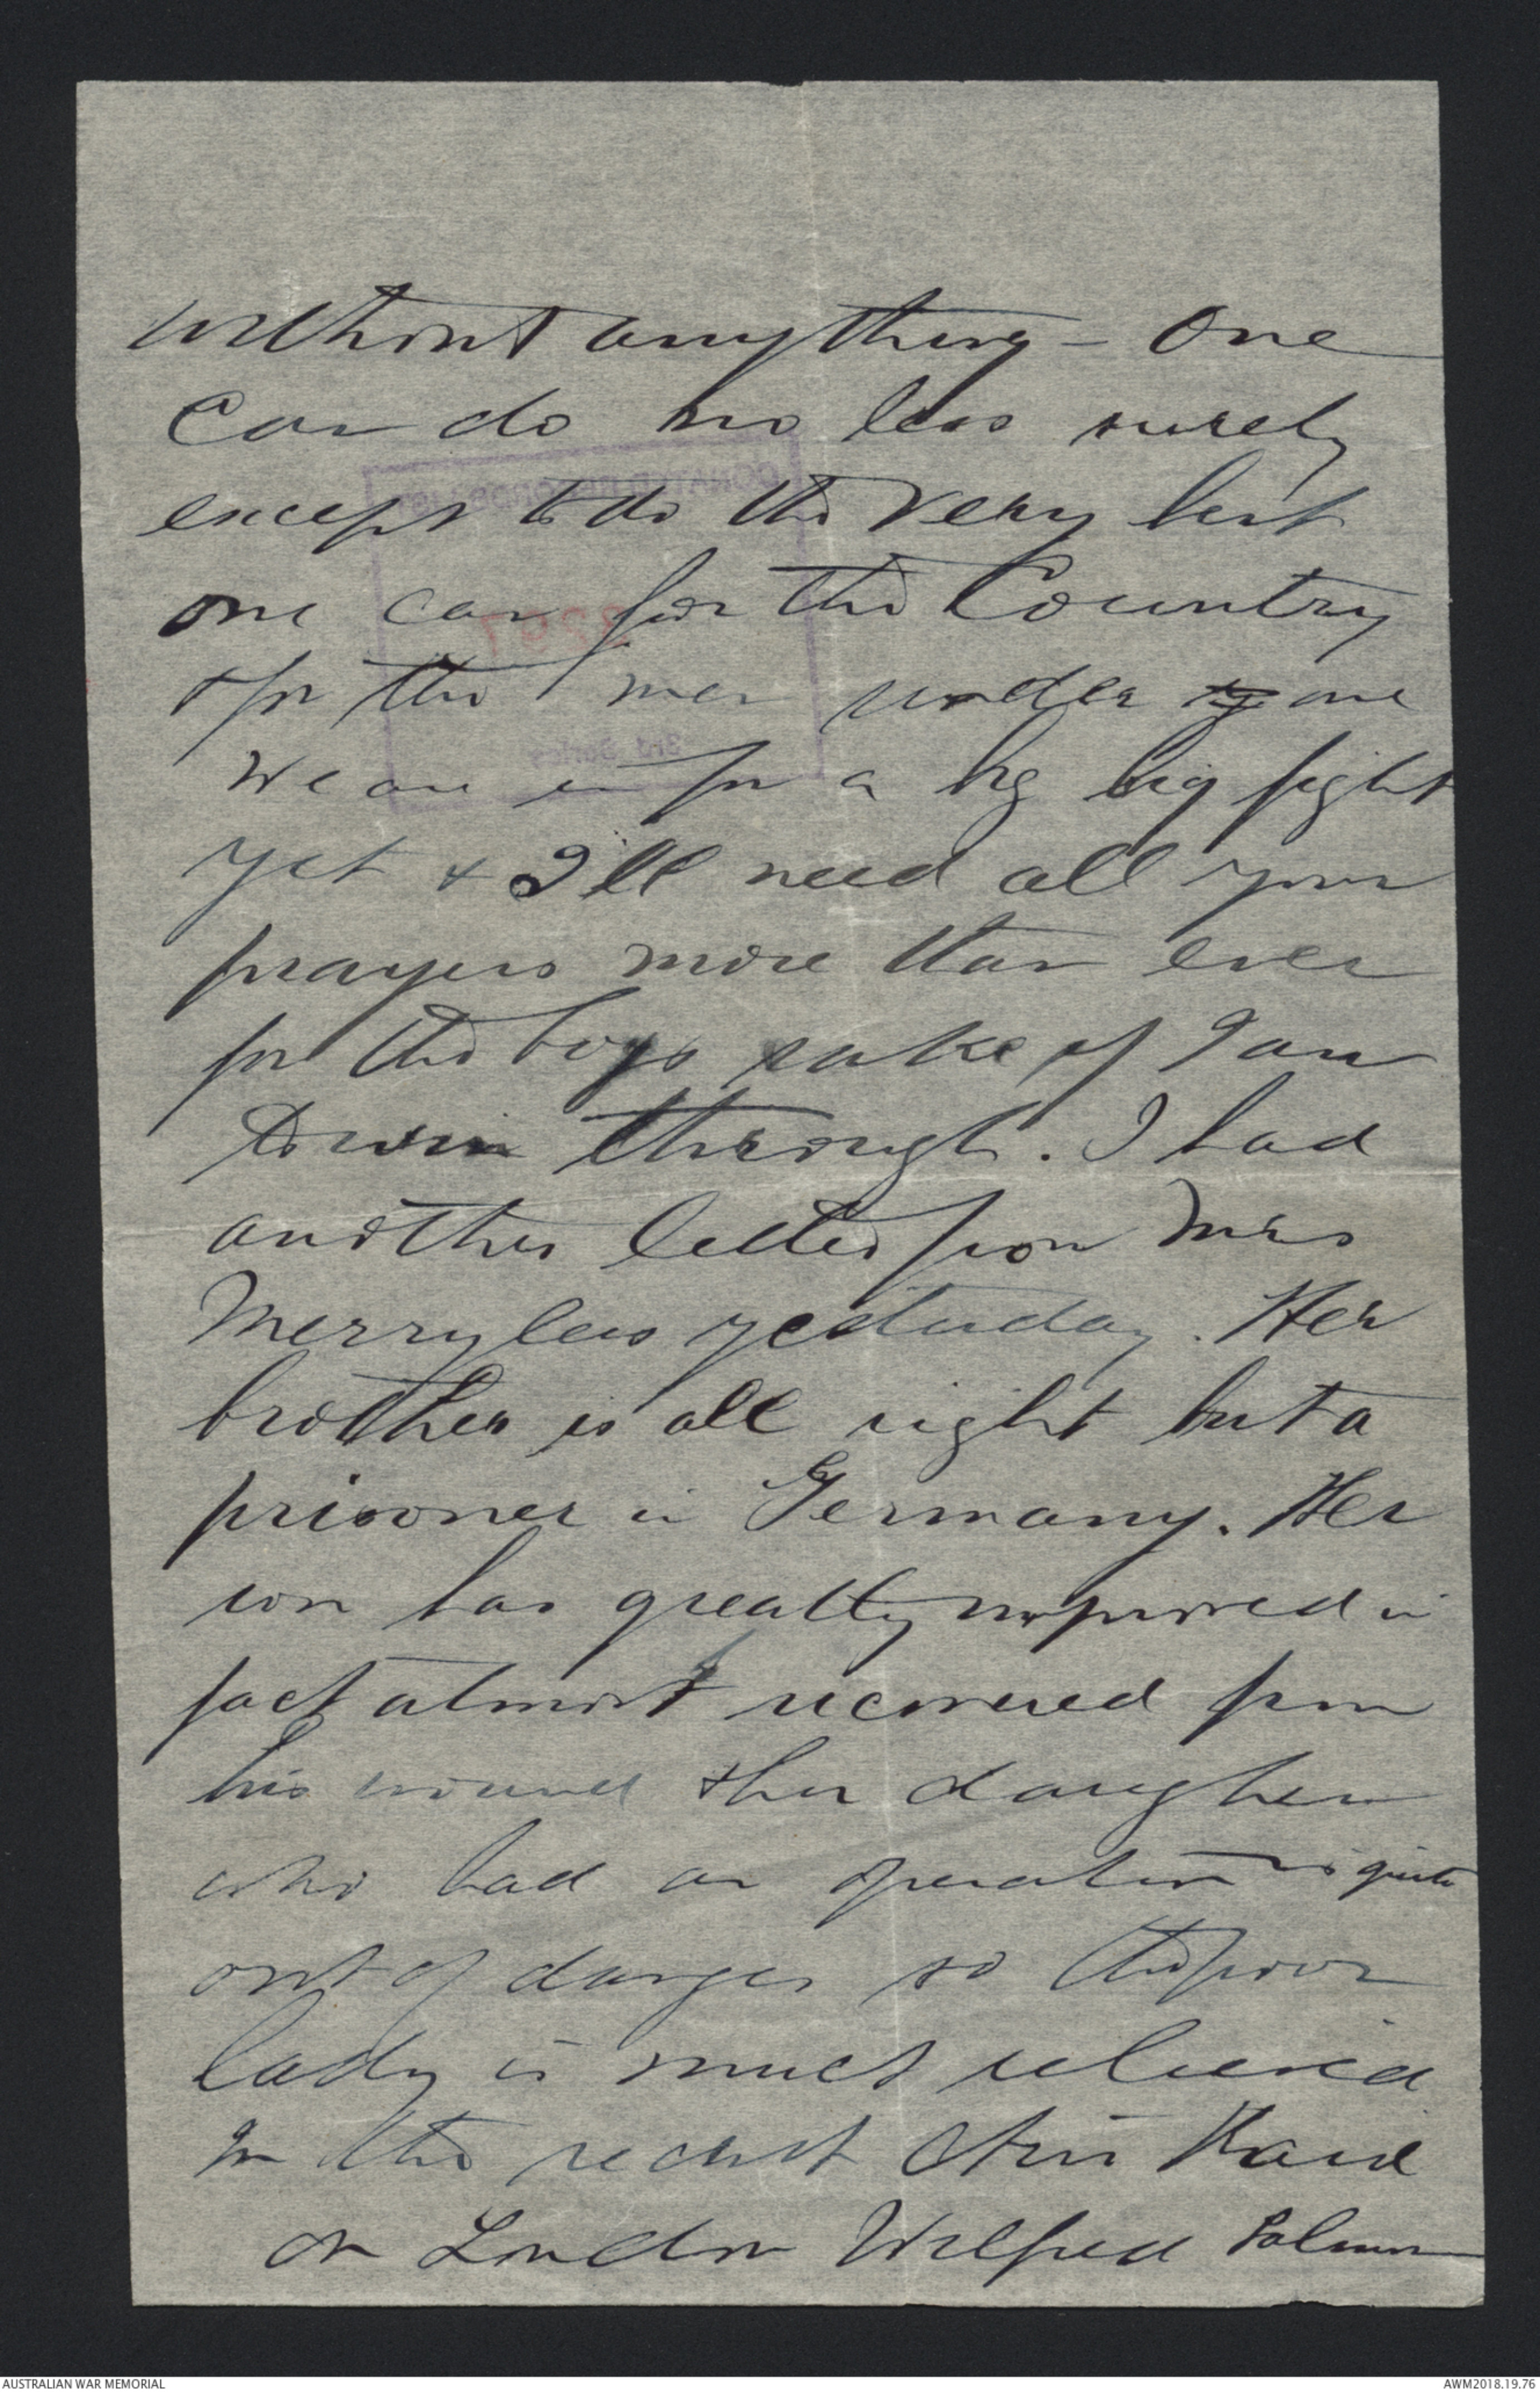 without anything - One
can do no less surely
except to do the very best
one can for the Country
& for the men under one
We are in for a big big fight
yet & I'll need all your
prayers more than ever
for the boys sake if I am
to win through. I had
another letter from Mrs
Merrylees yesterday. Her
brother is all right but a
prisoner in Germany. Her
son has greatly improved in
fact almost recovered from
his wound & her daughter
who had an operation is quite
out of danger so the poor
lady is much relieved
In the recent Air Raid
on London Wilfred
AUSTRALIAN WAR MEMORIAL
AWM2018.19.76